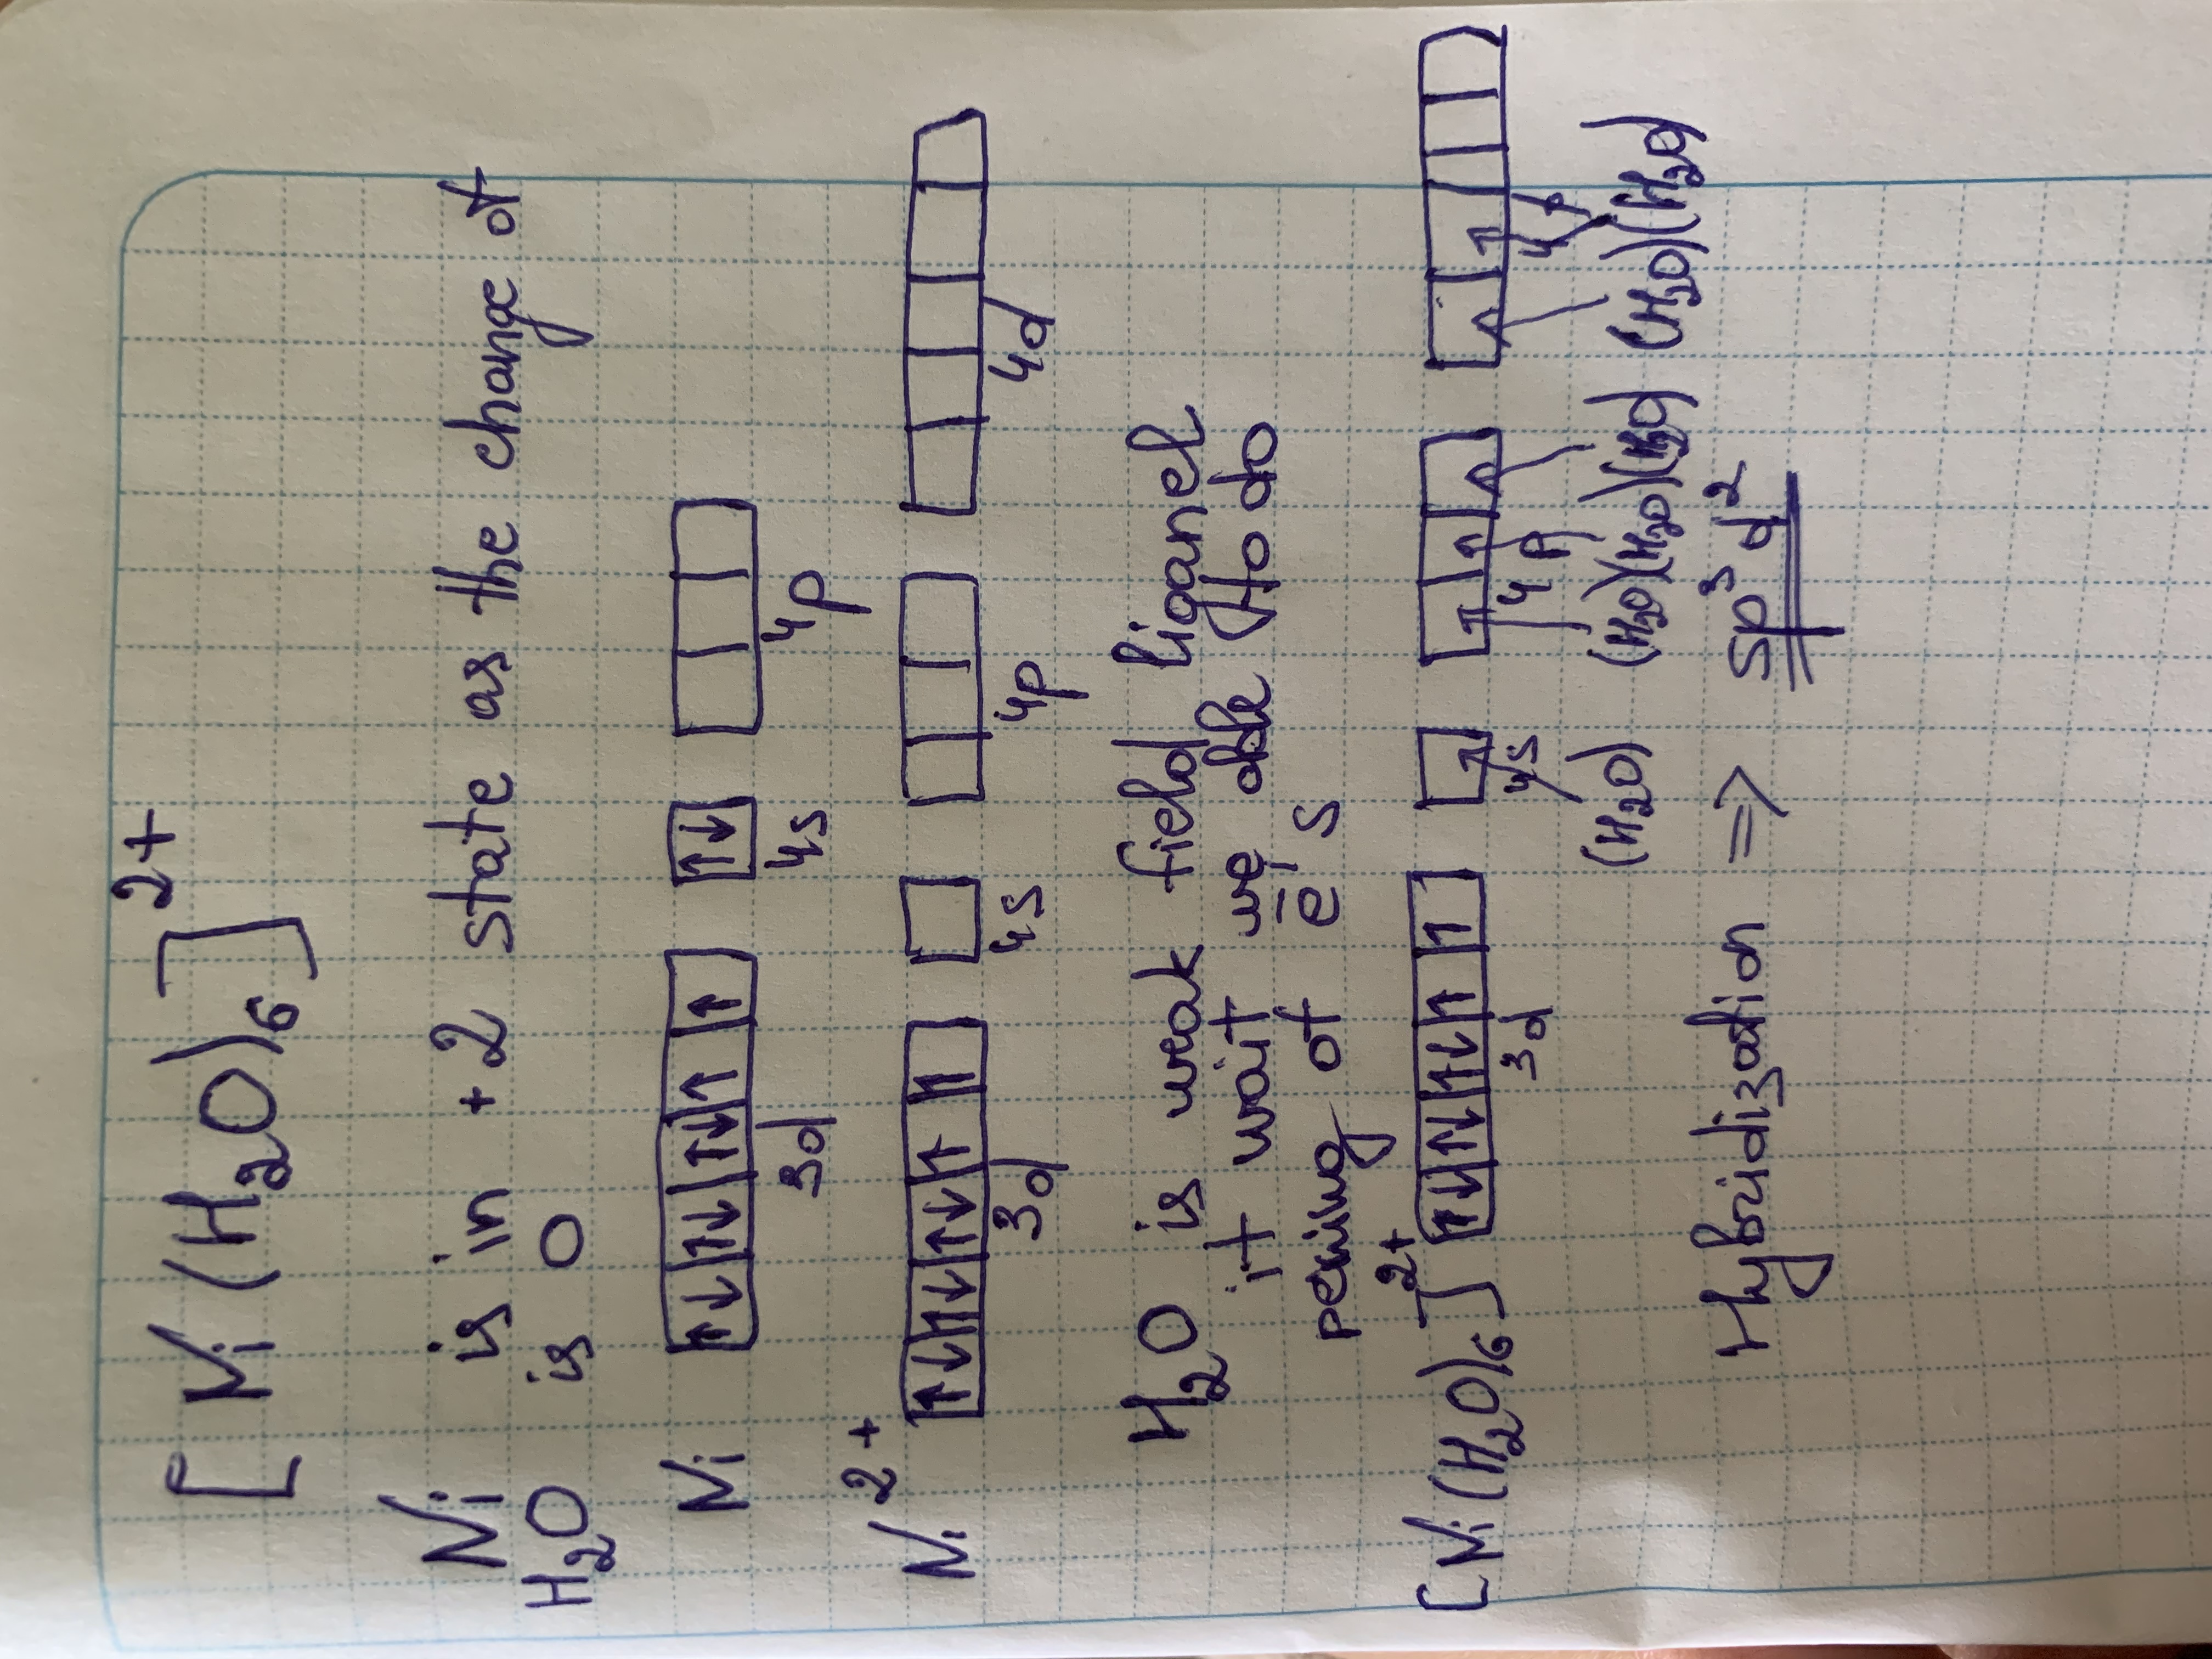 [Ni(H₂O)₆]²⁺
Ni is in +2 state as the change of
H₂O is 0
Ni ↑↓ ↑↓ ↑↓ ↑ ↑ ↑↓
3d 4s 4p
Ni²⁺ ↑↓ ↑↓ ↑↓ ↑ ↑
3d 4s 4p 4d
H₂O is weak field liganel
it wait we able to do
pering of e̅'s
[Ni(H₂O)₆]²⁺ ↑↓ ↑↓ ↑↓ ↑ ↑ ↑ ↑ ↑ ↑ ↑ ↑
3d 4s 4p 4p
(H₂O) (H₂O)(H₂O)(H₂O) (H₂O)(H₂O)
Hybridization ⇒ sp³d²